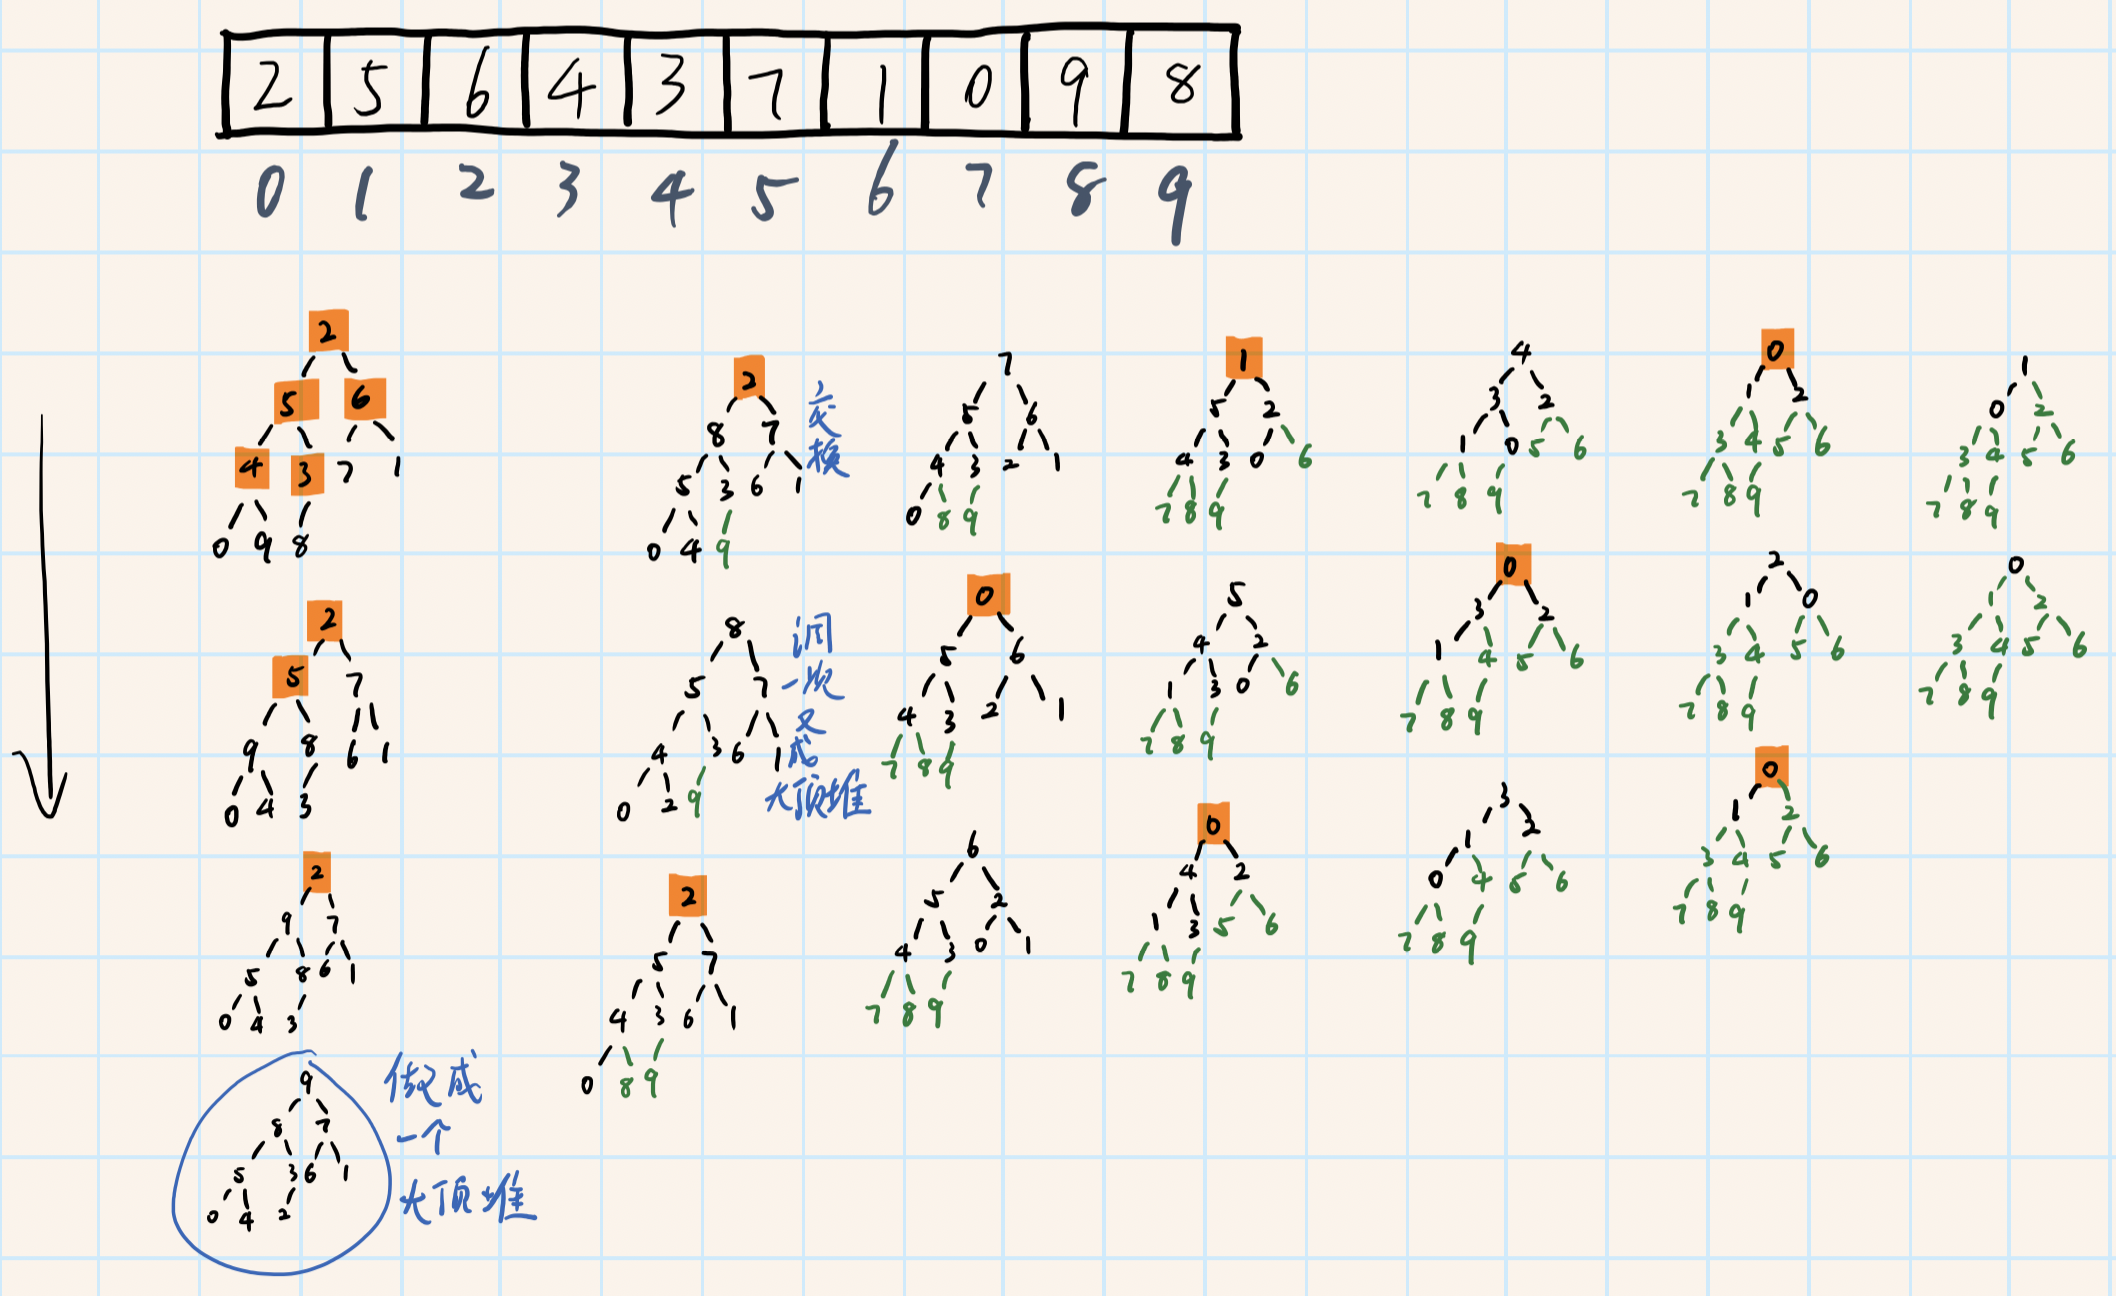 2 5 6 4 3 7 1 0 9 8
0 1 2 3 4 5 6 7 8 9
2
5 6
4 3 7 1
0 9 8
2
5 7
9 8 6 1
0 4 3
2
9 7
5 8 6 1
0 4 3
9
8 7
5 3 6 1
0 4 2
做成
一个
大顶堆
2
8 7
5 3 6 1
0 4 9
交
换
8
5 7
4 3 6 1
0 2 9
调
一次
又
成
大顶堆
2
5 7
4 3 6 1
0 8 9
7
5 6
4 3 2 1
0 8 9
0
5 6
4 3 2 1
7 8 9
6
5 2
4 3 0 1
7 8 9
1
5 2
4 3 0 6
7 8 9
5
4 2
1 3 0 6
7 8 9
0
4 2
1 3 5 6
7 8 9
4
3 2
1 0 5 6
7 8 9
0
3 2
1 4 5 6
7 8 9
3
1 2
0 4 5 6
7 8 9
0
1 2
3 4 5 6
7 8 9
2
1 0
3 4 5 6
7 8 9
0
1 2
3 4 5 6
7 8 9
1
0 2
3 4 5 6
7 8 9
0
1 2
3 4 5 6
7 8 9